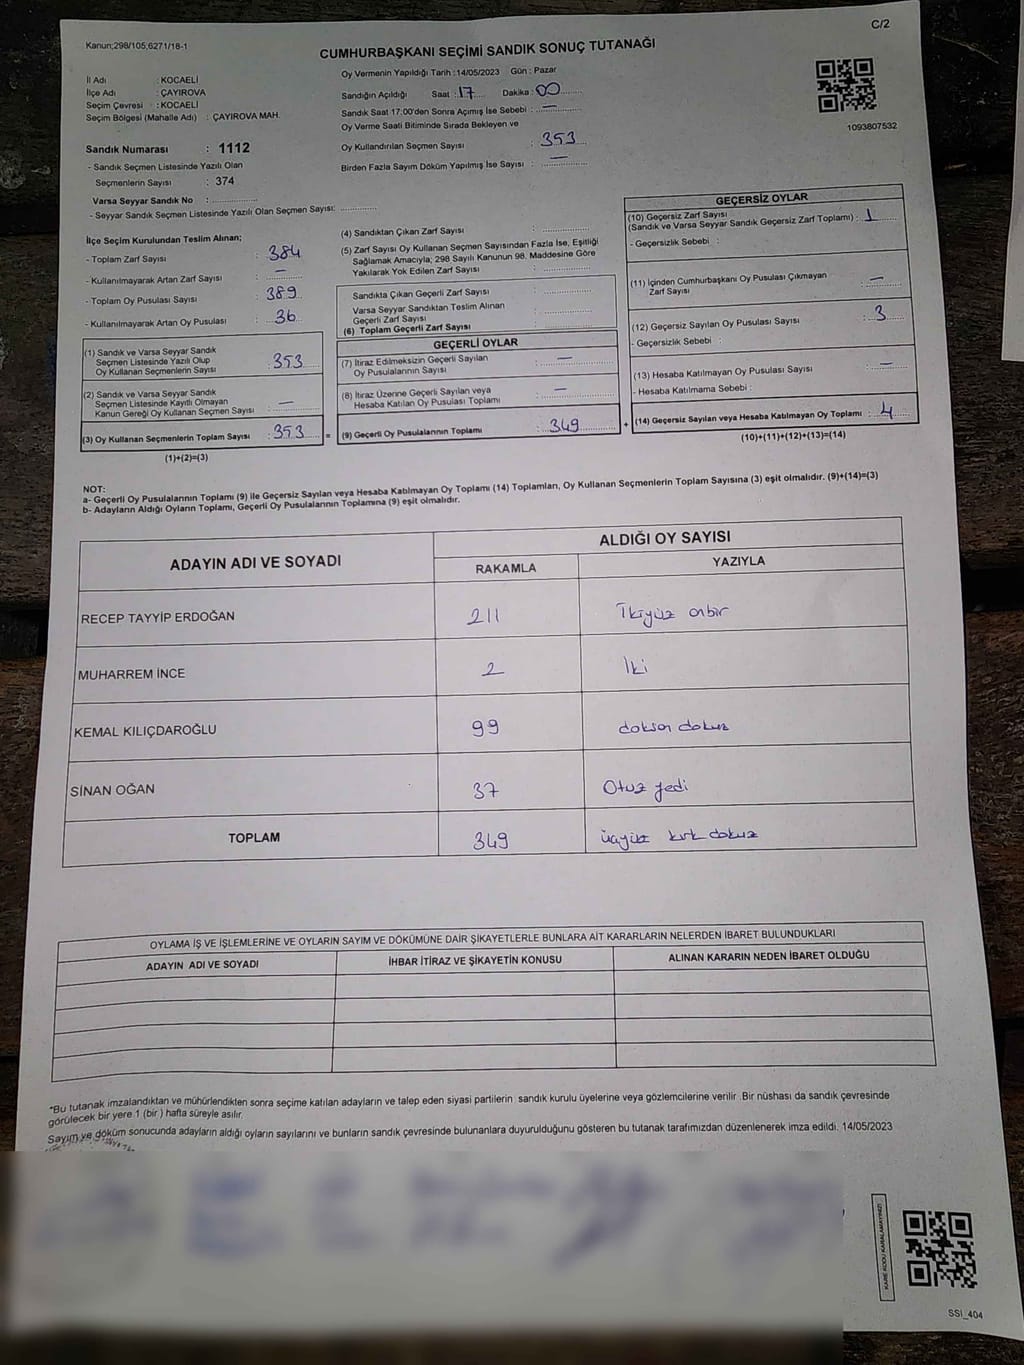 C/2
Kanun;298/105,6271/18-1
CUMHURBAŞKANI SEÇİMİ SANDIK SONUÇ TUTANAĞI
İl Adı : KOCAELİ
İlçe Adı : ÇAYIROVA
Seçim Çevresi : KOCAELİ
Seçim Bölgesi (Mahalle Adı) : ÇAYIROVA MAH.
Sandık Numarası : 1112
- Sandık Seçmen Listesinde Yazılı Olan
Seçmenlerin Sayısı : 374
Varsa Seyyar Sandık No :
- Seyyar Sandık Seçmen Listesinde Yazılı Olan Seçmen Sayısı:
Oy Vermenin Yapıldığı Tarih :14/05/2023 Gün : Pazar
Sandığın Açıldığı Saat : 17 Dakika : 00
Sandık Saat 17:00'den Sonra Açımış İse Sebebi : —
Oy Verme Saati Bitiminde Sırada Bekleyen ve
Oy Kullandırılan Seçmen Sayısı : 353
Birden Fazla Sayım Döküm Yapılmış İse Sayısı : —
1093807532
İlçe Seçim Kurulundan Teslim Alınan;
- Toplam Zarf Sayısı : 384
- Kullanılmayarak Artan Zarf Sayısı : —
- Toplam Oy Pusulası Sayısı : 389
- Kullanılmayarak Artan Oy Pusulası : 36
(1) Sandık ve Varsa Seyyar Sandık
Seçmen Listesinde Yazılı Olup
Oy Kullanan Seçmenlerin Sayısı : 353
(2) Sandık ve Varsa Seyyar Sandık
Seçmen Listesinde Kayıtlı Olmayan
Kanun Gereği Oy Kullanan Seçmen Sayısı : —
(3) Oy Kullanan Seçmenlerin Toplam Sayısı : 353 =
(1)+(2)=(3)
(4) Sandıktan Çıkan Zarf Sayısı :
(5) Zarf Sayısı Oy Kullanan Seçmen Sayısından Fazla İse, Eşitliği
Sağlamak Amacıyla; 298 Sayılı Kanunun 98. Maddesine Göre
Yakılarak Yok Edilen Zarf Sayısı :
Sandıkta Çıkan Geçerli Zarf Sayısı :
Varsa Seyyar Sandıktan Teslim Alınan
Geçerli Zarf Sayısı :
(6) Toplam Geçerli Zarf Sayısı :
GEÇERLİ OYLAR
(7) İtiraz Edilmeksizin Geçerli Sayılan
Oy Pusulalarının Sayısı : —
(8) İtiraz Üzerine Geçerli Sayılan veya
Hesaba Katılan Oy Pusulası Toplamı : —
(9) Geçerli Oy Pusulalarının Toplamı : 349 +
GEÇERSİZ OYLAR
(10) Geçersiz Zarf Sayısı
(Sandık ve Varsa Seyyar Sandık Geçersiz Zarf Toplamı) : 1
- Geçersizlik Sebebi :
(11) İçinden Cumhurbaşkanı Oy Pusulası Çıkmayan
Zarf Sayısı : —
(12) Geçersiz Sayılan Oy Pusulası Sayısı : 3
- Geçersizlik Sebebi :
(13) Hesaba Katılmayan Oy Pusulası Sayısı : —
- Hesaba Katılmama Sebebi :
(14) Geçersiz Sayılan veya Hesaba Katılmayan Oy Toplamı : 4
(10)+(11)+(12)+(13)=(14)
NOT:
a- Geçerli Oy Pusulalarının Toplamı (9) ile Geçersiz Sayılan veya Hesaba Katılmayan Oy Toplamı (14) Toplamları, Oy Kullanan Seçmenlerin Toplam Sayısına (3) eşit olmalıdır. (9)+(14)=(3)
b- Adayların Aldığı Oyların Toplamı, Geçerli Oy Pusulalarının Toplamına (9) eşit olmalıdır.
ADAYIN ADI VE SOYADI
ALDIĞI OY SAYISI
RAKAMLA YAZIYLA
RECEP TAYYİP ERDOĞAN 211 İkiyüz onbir
MUHARREM İNCE 2 İki
KEMAL KILIÇDAROĞLU 99 doksan dokuz
SİNAN OĞAN 37 Otuz yedi
TOPLAM 349 üçyüz kırk dokuz
OYLAMA İŞ VE İŞLEMLERİNE VE OYLARIN SAYIM VE DÖKÜMÜNE DAİR ŞİKAYETLERLE BUNLARA AİT KARARLARIN NELERDEN İBARET BULUNDUKLARI
ADAYIN ADI VE SOYADI İHBAR İTİRAZ VE ŞİKAYETİN KONUSU ALINAN KARARIN NEDEN İBARET OLDUĞU
*Bu tutanak imzalandıktan ve mühürlendikten sonra seçime katılan adayların ve talep eden siyasi partilerin sandık kurulu üyelerine veya gözlemcilerine verilir. Bir nüshası da sandık çevresinde
görülecek bir yere 1 (bir ) hafta süreyle asılır.
Sayım ve döküm sonucunda adayların aldığı oyların sayılarını ve bunların sandık çevresinde bulunanlara duyurulduğunu gösteren bu tutanak tarafımızdan düzenlenerek imza edildi. 14/05/2023
KARE KODU KARALAMAYINIZ!
SSİ_404